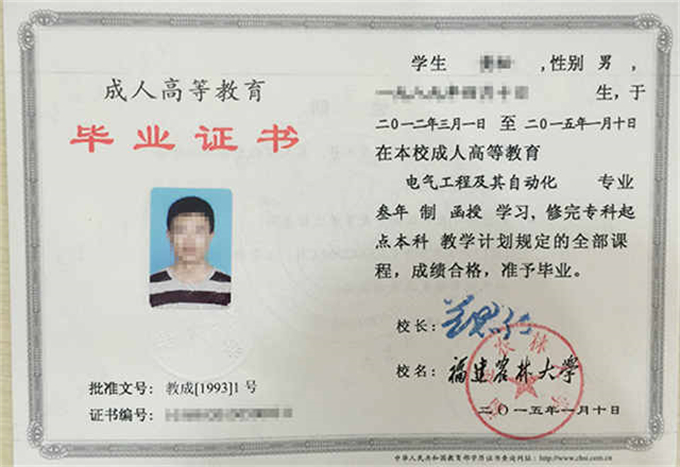 成人高等教育
毕业证书
批准文号：教成[1993]1号
证书编号：
学生 ,性别 男，
生,于
二〇一二年三月一日 至 二〇一五年一月十日
在本校成人高等教育
电气工程及其自动化 专业
叁年 制 函授 学习，修完专科起
点本科 教学计划规定的全部课
程，成绩合格，准予毕业。
校长：
校名：福建农林大学
二〇一五年一月十日
中华人民共和国教育部学历证书查询网址：http://www.chsi.com.cn